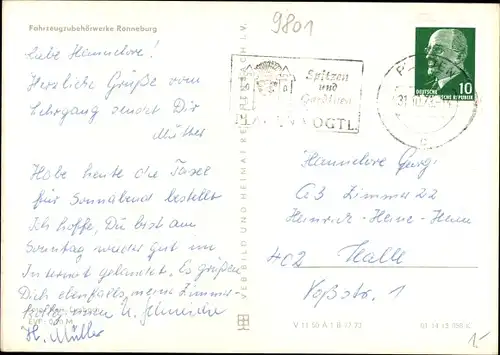 Fahrzeugzubehörwerke Ronneburg
9801
Liebe Hannelore!
Herzliche Grüße vom
Lehrgang sendet Dir
Mutter
Habe heute die Insel
für Sonnabend bestellt
Ich hoffe, Du bist am
Sonntag wieder gut im
Internat gelandet. Es grüßen
Dich ebenfalls meine Zimmer-
H. Müller
EVP: 0,20 M
VEB BILD UND HEIMAT REICHENBACH I.V.
Spitzen
und
Gardinen
PLAUEN VOGTL.
10
DEUTSCHE
DEMOKRATISCHE REPUBLIK
Hannelore Georgi
G3 Zimmer 22
Heinrich-Heine-Heim
402 Halle
Voßstr. 1
V 11 50 A 1 B 17 72
01 14 13 098 C
1,-